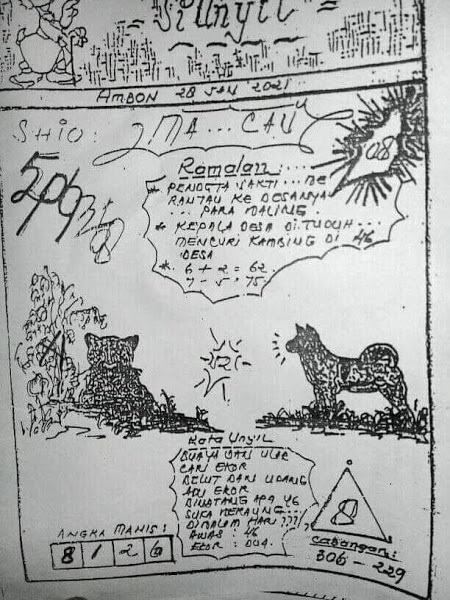 Si Unyil
AMBON 28 JAN 2021
SHIO: 2MA... CAU
08
Ramalan:...
* PENDETA SAKTI... ME
RANTAU KE DESANYA
... PARA MALING.
* KEPALA DESA DI TUDUH...
MENCURI KAMBING DI 46
DESA
* 6 + 2 = 62
7 - 5 = 75
Kata Unyil
BUAYA DAN ULAR
CARI EKOR
BELUT DAN UDANG
ADU EKOR
BINATANG APA YG
SUKA MERAUNG...
DIMALAM HARI????
AWAS : 46
EKOR : DUA.
8
ANGKA MANIS:
8 1 2 6
CABANGAN:
306 - 229